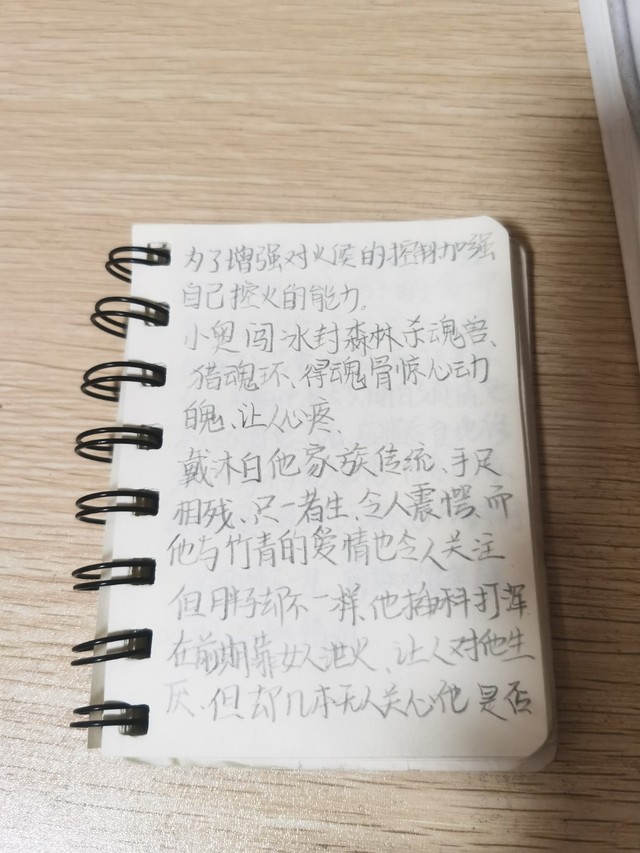 为了增强对火候的控制加强
自己控火的能力。
小奥闯冰封森林杀魂兽、
猎魂环、得魂骨惊心动
魄、让人心疼、
戴沐白他家族传统、手足
相残、只一者生、令人震愕、而
他与竹青的爱情也令人关注
但胖子却不一样、他插科打浑
在前期靠女人泄火、让人对他生
厌、但却几乎无人关心他是否